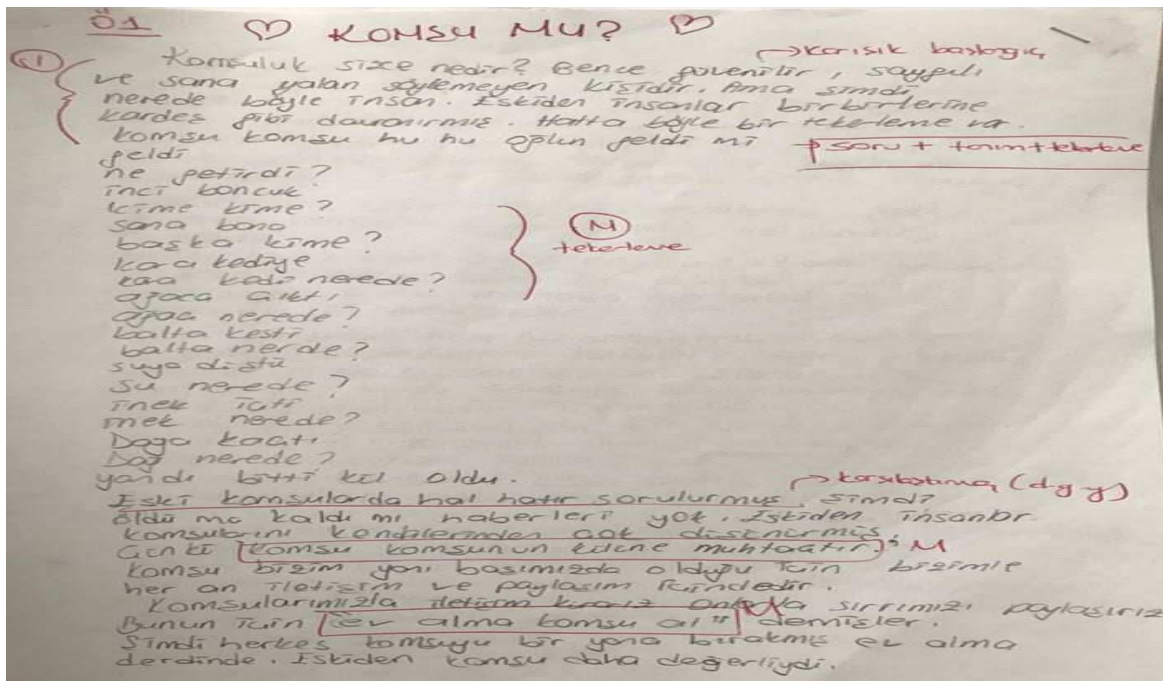 Ö1 ♡ KOMSU MU? ♡
→karısık baslangıç
1 Komsuluk sizce nedir? Bence güvenilir, saygılı
ve sana yalan söylemeyen kisidir. Ama simdi
nerede böyle insan. Eskiden insanlar birbirlerine
kardes gibi davranırmıs. Hatta böyle bir tekerleme var.
komsu komsu hu hu oğlun geldi mi → soru + tanım + tekerleme
geldi
ne getirdi?
inci boncuk
kime kime?
sana bana
baska kime?
kara kediye
kara kedi nerede?
M
tekerleme
ağaca çıktı
ağaç nerede?
balta kesti
balta nerde?
suya düstü
su nerede?
inek içti
inek nerede?
Dağa kaçtı
Dağ nerede?
yandı bitti kül oldu.
→karsılastırma (dgy)
Eski komsularda hal hatır sorulurmus, simdi
öldü mü kaldı mı haberleri yok. Eskiden insanlar
komsularını kendilerinden çok düsünürmüs
Çünkü komsu komsunun külüne muhtaçtır. M
komsu bizim yanı basımızda olduğu için bizimle
her an iletisim ve paylasım içindedir.
Komsularımızla iletisim kurarız onlarla sırrımızı paylasırız
M
Bunun için "ev alma komsu al" demisler.
Simdi herkes komsuyu bir yana bırakmıs ev alma
derdinde. Eskiden komsu daha değerliydi.